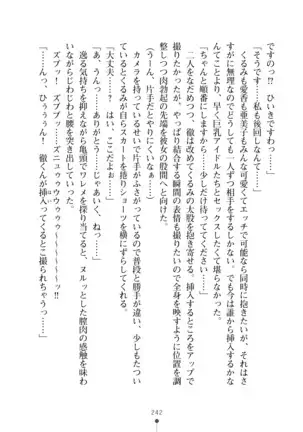 ですのっ、ひいきですわっ……」
「そうです……私も後回しなんて……」
くるみも愛香も亜美子もみんな可愛くてエッチで可能なら同時に抱きたいが、さ
すがに無理なのでどうしても一人ずつ相手をするしかない。でも今は誰から挿入するかな
んてことより、早く巨乳アイドルたちとセックスしたくて堪らなかった。
「ちゃんと順番にしますから……少しだけ待っててください……」
二人をなだめつつ、徹はくるみの太股を抱き寄せる。挿入するところをアップで
撮りたかったが、やっぱり結合する瞬間の表情も撮りたいので全身が映すように位置を調
整しつつ肉勃起の先端を彼女の股間へと向けた。
(うーん、片手だとやりにくいなぁ……)
カメラを持っているせいで片手がふさがっているので普段と勝手が違い、少しもたつい
ているとくるみが自分からスカートを捲りショーツを横にずらしてくれる。
「大丈夫……? はい、ここだよ……」
「あ、うんっ……ありがとう……じゃあいくね……っ」
逸る気持ちを抑えながら亀頭でワレメを探り当てると、ヌルッとした膣肉の感触を味わ
いながらじわじわと腰を突き出していった。
ズブッ! ズブブッ、ズニュウウゥゥゥ~~~~~~~~ッ!!
「……んっ、ひぅぅぅん! 徹くんが挿入ってくるとこ撮られちゃうっ……」
242